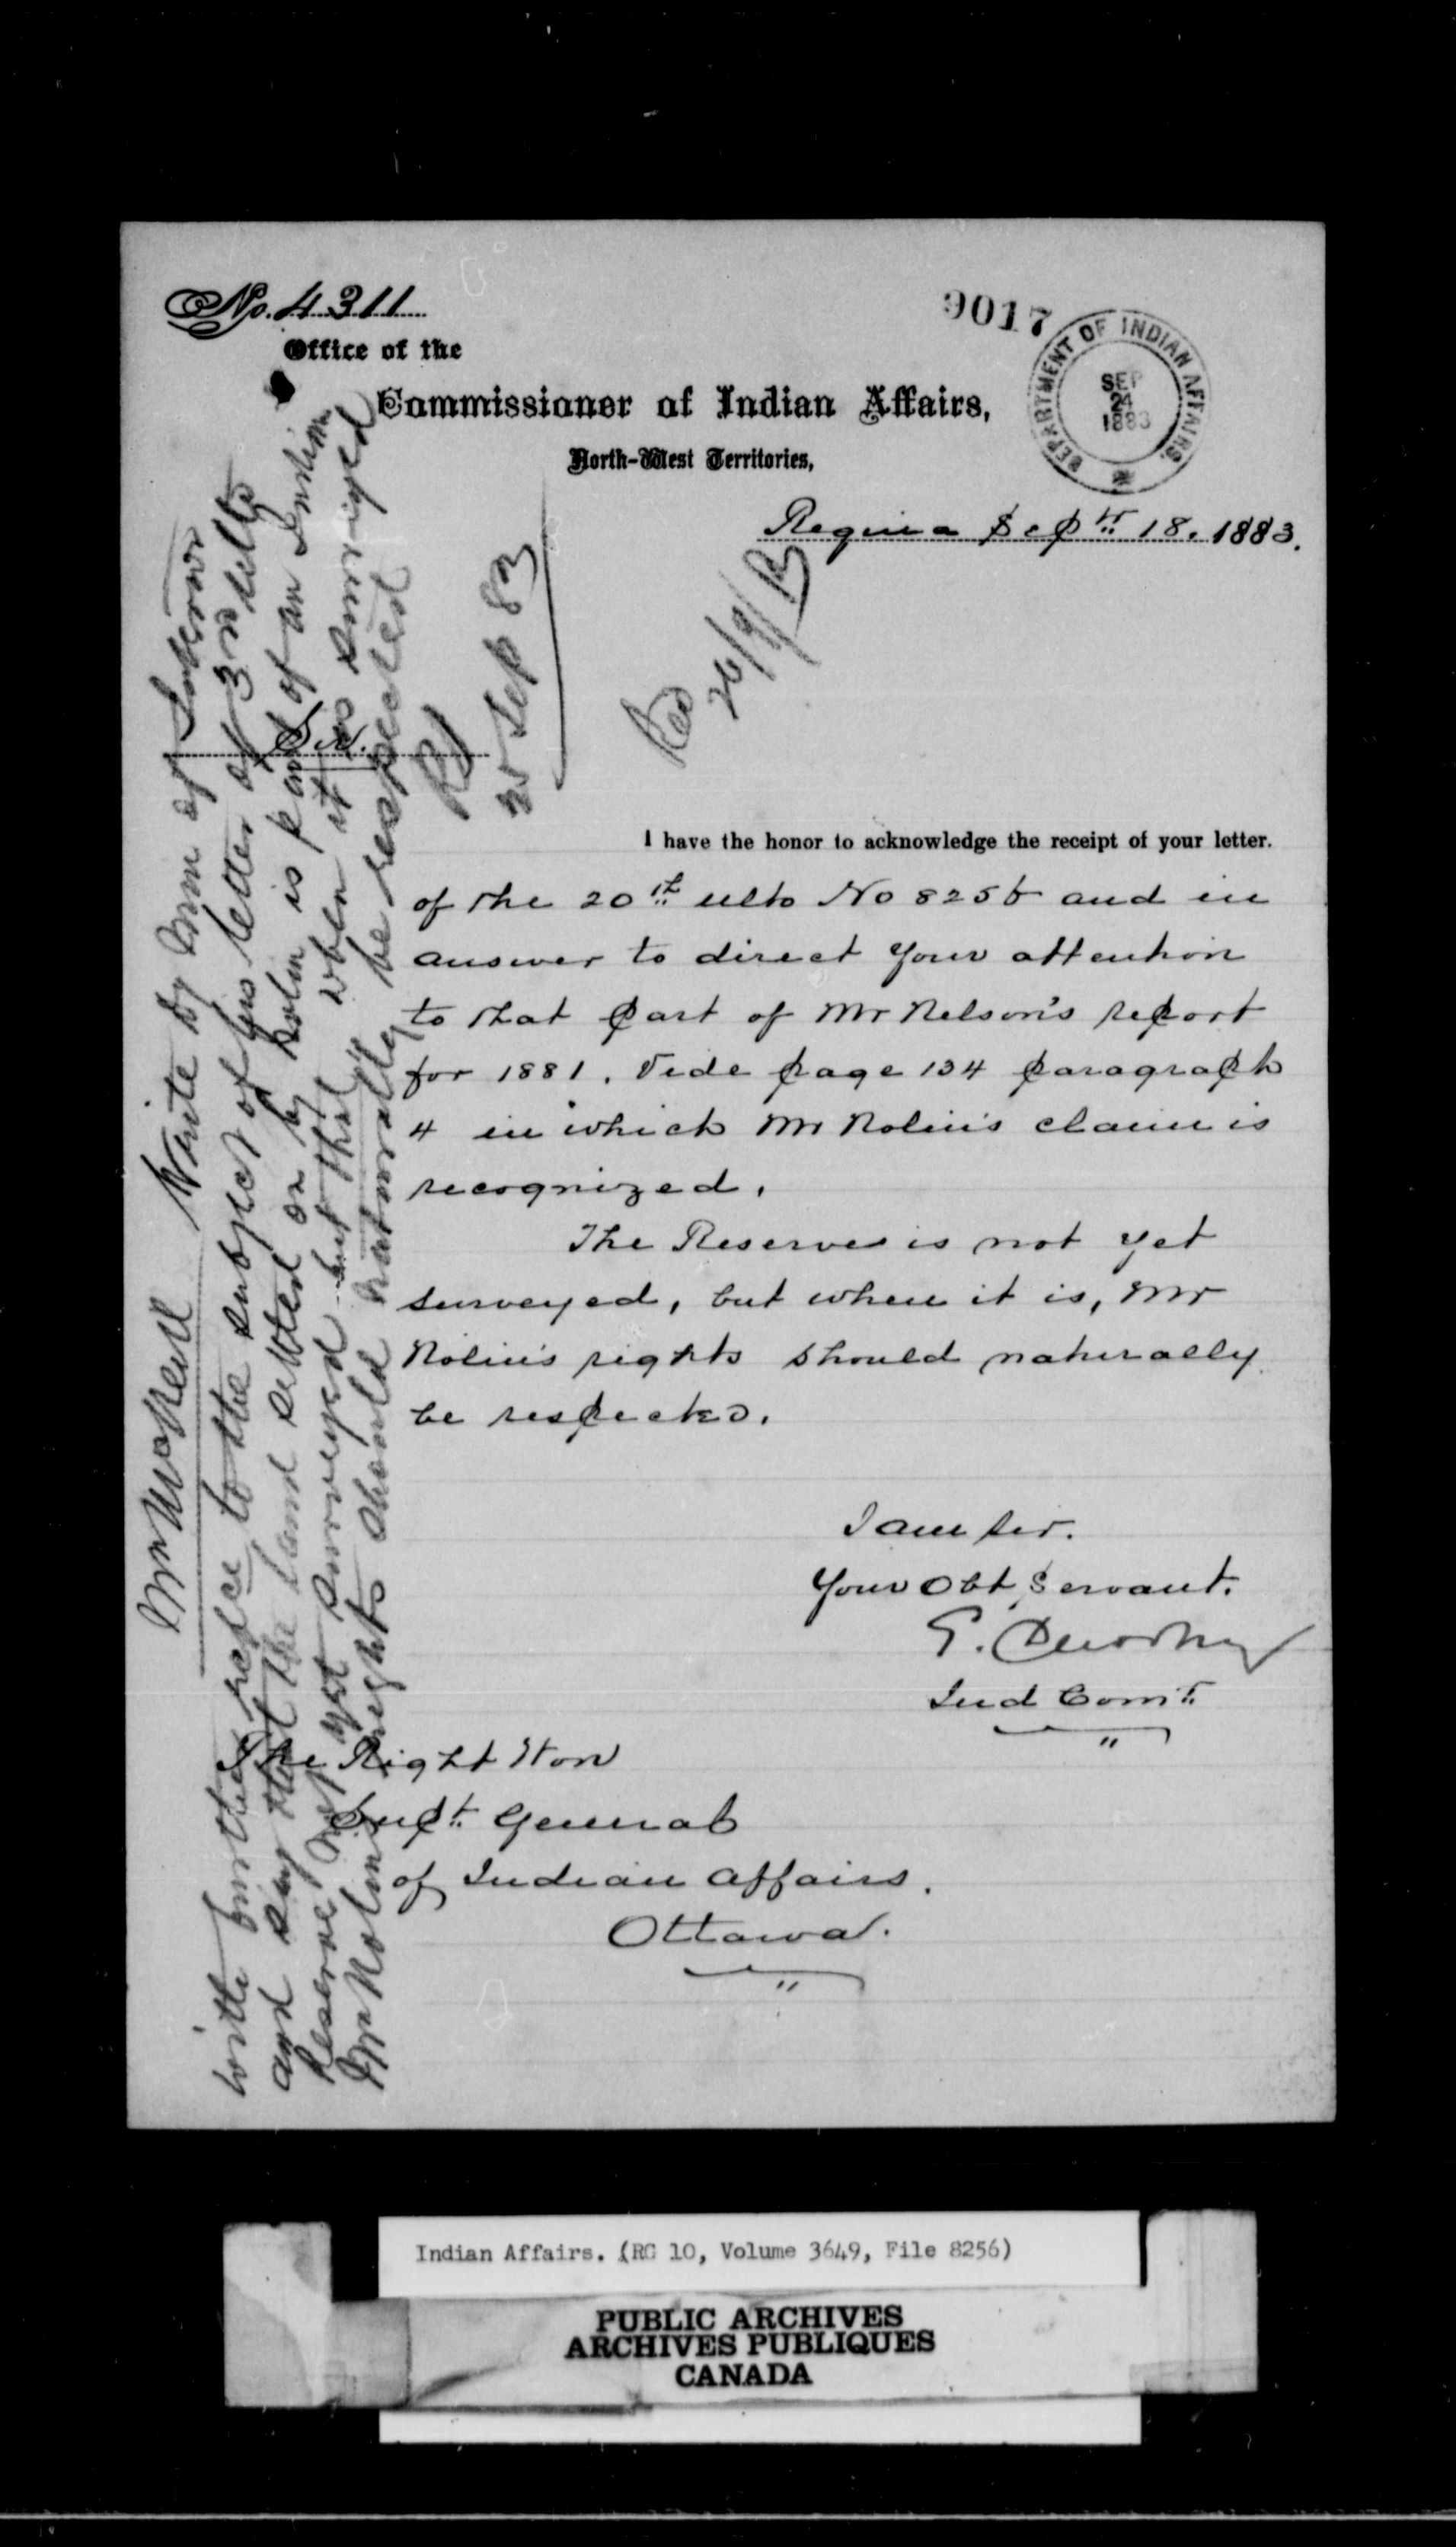 No. 4311
9017
Office of the
Commissioner of Indian Affairs,
North-West Territories,
DEPARTMENT OF INDIAN AFFAIRS.
SEP
24
1883
Regina Sept 18. 1883.
Sir.
I have the honor to acknowledge the receipt of your letter.
of the 20th ulto No 8256 and in
answer to direct your attention
to that part of Mr Nelson's report
for 1881. Vide page 134 paragraph
4 in which Mr Nolin's claim is
recognized.
The Reserve is not yet
surveyed, but when it is, Mr
Nolin's rights should naturally
be respected.
I am sir.
Your Obt Servant.
E. Dewdney
Ind Comr
The Right Hon
Supt General
of Indian Affairs.
Ottawa.
Write Dy Min of Interior
with further refce to the subject of his letter of 3rd ulto
and say that the land settled on by Nolin is part of an Indian
Reserve not yet surveyed but that when it is surveyed
Mr Nolin's rights should naturally be respected
25 Sep 83
26/9/
Indian Affairs. (RG 10, Volume 3649, File 8256)
PUBLIC ARCHIVES
ARCHIVES PUBLIQUES
CANADA